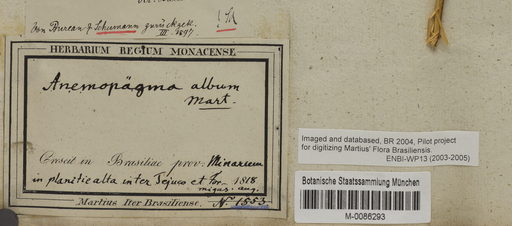 Von Bureau & Schumann zurückgek.
III. 1897.
HERBARIUM REGIUM MONACENSE.
Anemopägma album
Mart.
Crescit in Brasiliae prov: Minarum
in planitie alta inter Tejuco et For-
migas. aug. 1818
Martius Iter Brasiliense. Nº 1553
Imaged and databased, BR 2004, Pilot project
for digitizing Martius' Flora Brasiliensis.
ENBI-WP13 (2003-2005)
Botanische Staatssammlung München
M-0086293